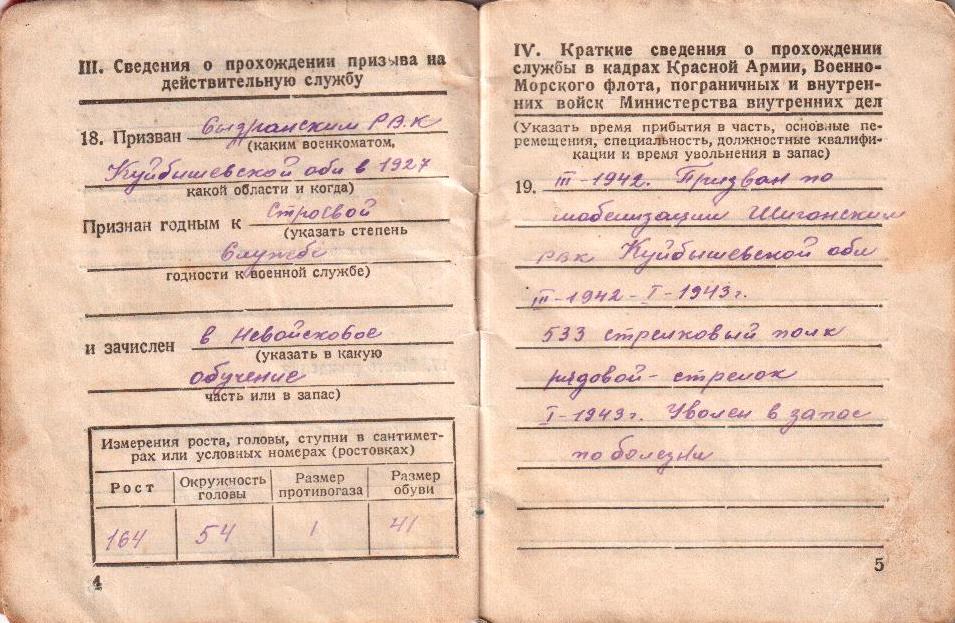 III. Сведения о прохождении призыва на
действительную службу
18. Призван Сызранским РВК
(каким военкоматом,
Куйбышевской обл в 1927
какой области и когда)
Признан годным к Строевой
(указать степень
Службе
годности к военной службе)
и зачислен в Невойсковое
(указать в какую
обучение
часть или в запас)
Измерения роста, головы, ступни в сантимет-
рах или условных номерах (ростовках)
Рост Окружность головы Размер противогаза Размер обуви
164 54 1 41
4
IV. Краткие сведения о прохождении
службы в кадрах Красной Армии, Военно-
Морского флота, пограничных и внутрен-
них войск Министерства внутренних дел
(Указать время прибытия в часть, основные пе-
ремещения, специальность, должностные квалифи-
кации и время увольнения в запас)
19. III-1942. Призван по
мобелизации Шигонским
РВК Куйбышевской обл
III-1942-I-1943г.
533 стрелковый полк
рядовой-стрелок
I-1943г. Уволен в запас
по болезни
5